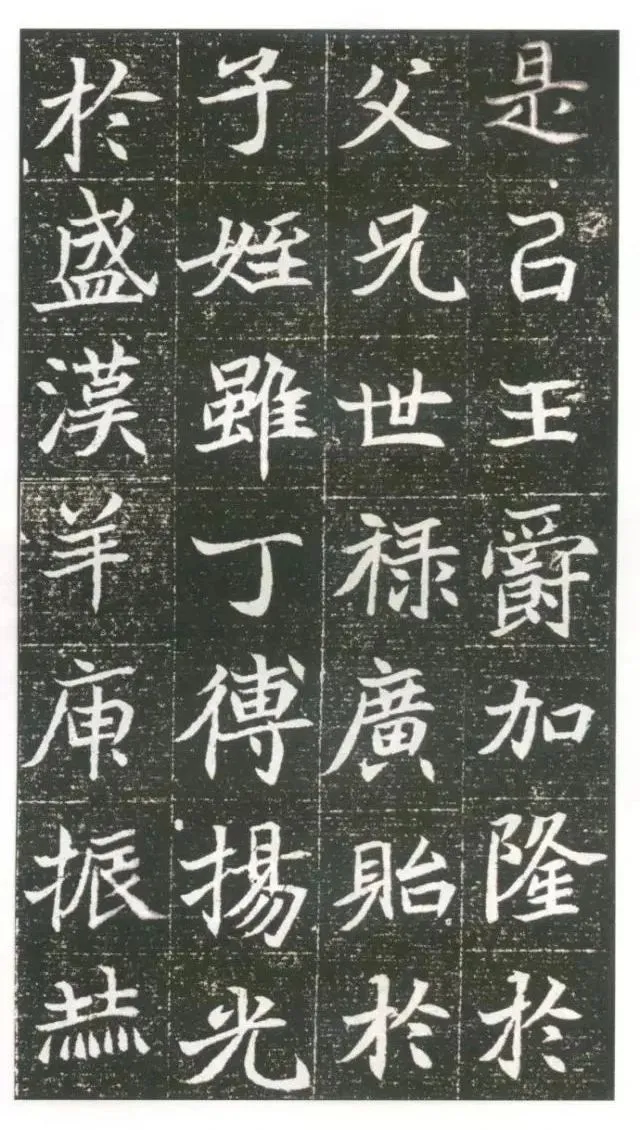 是㠯王爵加隆於
父兄世禄廣貽於
子姪雖丁傅揚光
於盛漢羊庾振赫